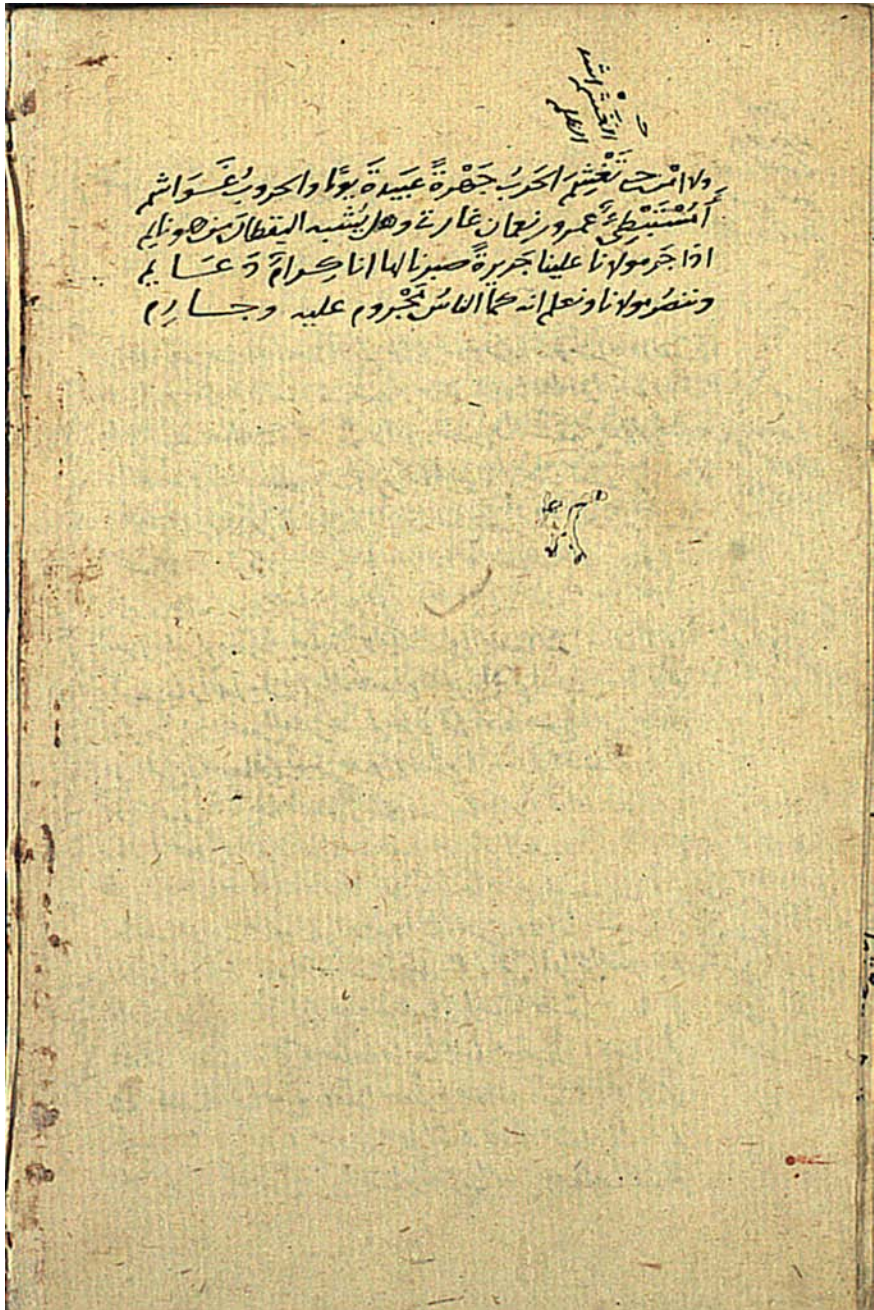 الغَشم اشد
الظلم
ولا امْنَ حتى تَغْشِمَ الحَربُ جَهْرةً عَبيدةَ يومًا والحروبُ غَوَاشم
أمُسْتَبْطِئٌ عمرو بن نعمان غارتي وهل يُشْبِه اليقظان من هو نايم
اذا جر مولانا علينا جريرةً صبرنا لها انا كِرامٌ دَعَايم
وننصرُ مولانا ونعلم انه كما الناسُ مَجْروم عليه وجارِم